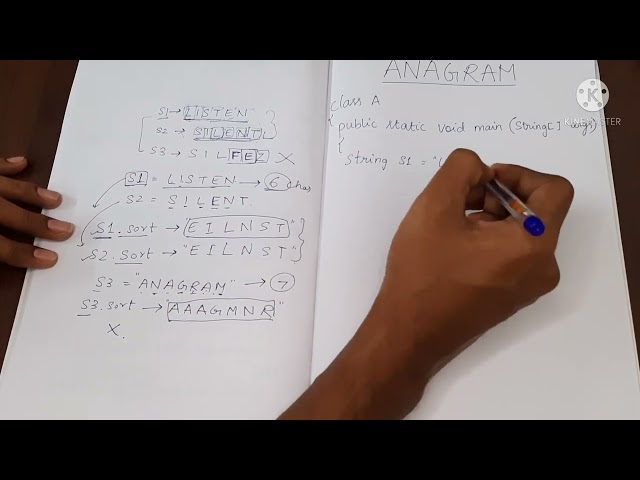 S1 → LISTEN
S2 → SILENT
S3 → SILFEZ X
S1 = LISTEN → 6 Char
S2 = SILENT.
S1.sort → "EILNST"
S2.sort → "EILNST"
S3 = "ANAGRAM" → 7
S3.sort → "AAAGMNR"
X.
ANAGRAM
class A
{ public static void main (String[] args)
{
String S1 = "L
K
KINEMASTER